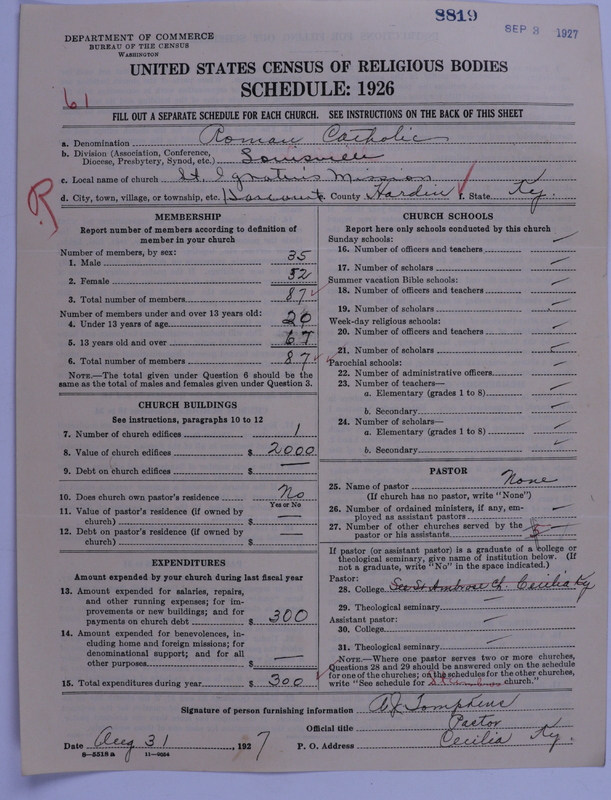 8819
SEP 3 1927
DEPARTMENT OF COMMERCE
BUREAU OF THE CENSUS
WASHINGTON
UNITED STATES CENSUS OF RELIGIOUS BODIES
SCHEDULE: 1926
61
FILL OUT A SEPARATE SCHEDULE FOR EACH CHURCH. SEE INSTRUCTIONS ON THE BACK OF THIS SHEET
a. Denomination Roman Catholic
b. Division (Association, Conference, Diocese, Presbytery, Synod, etc.) Louisville
c. Local name of church St. Ignatius Mission
d. City, town, village, or township, etc. Harcourt County Hardin f. State Ky.
R
MEMBERSHIP
Report number of members according to definition of member in your church
Number of members, by sex:
1. Male 35
2. Female 52
3. Total number of members 87
Number of members under and over 13 years old:
4. Under 13 years of age 20
5. 13 years old and over 67
6. Total number of members 87
NOTE.—The total given under Question 6 should be the same as the total of males and females given under Question 3.
CHURCH BUILDINGS
See instructions, paragraphs 10 to 12
7. Number of church edifices 1
8. Value of church edifices $ 2000
9. Debt on church edifices $ —
10. Does church own pastor's residence No
Yes or No
11. Value of pastor's residence (if owned by church) $ —
12. Debt on pastor's residence (if owned by church) $ —
EXPENDITURES
Amount expended by your church during last fiscal year
13. Amount expended for salaries, repairs, and other running expenses; for improvements or new buildings; and for payments on church debt $ 300
14. Amount expended for benevolences, including home and foreign missions; for denominational support; and for all other purposes $ —
15. Total expenditures during year $ 300
CHURCH SCHOOLS
Report here only schools conducted by this church
Sunday schools:
16. Number of officers and teachers —
17. Number of scholars —
Summer vacation Bible schools:
18. Number of officers and teachers —
19. Number of scholars —
Week-day religious schools:
20. Number of officers and teachers —
21. Number of scholars —
Parochial schools:
22. Number of administrative officers —
23. Number of teachers—
a. Elementary (grades 1 to 8) —
b. Secondary —
24. Number of scholars—
a. Elementary (grades 1 to 8) —
b. Secondary —
PASTOR
25. Name of pastor None
(If church has no pastor, write "None")
26. Number of ordained ministers, if any, employed as assistant pastors —
27. Number of other churches served by the pastor or his assistants
If pastor (or assistant pastor) is a graduate of a college or theological seminary, give name of institution below. (If not a graduate, write "No" in the space indicated.)
Pastor:
28. College See St Ambrose Ch. Cecilia Ky
29. Theological seminary —
Assistant pastor:
30. College —
31. Theological seminary —
NOTE.—Where one pastor serves two or more churches, Questions 28 and 29 should be answered only on the schedule for one of the churches; on the schedules for the other churches, write "See schedule for St. Ambrose church."
Signature of person furnishing information A J Tompkins
Official title Pastor
Date Aug 31, 1927 P. O. Address Cecilia Ky.
8—5518a 11—9064